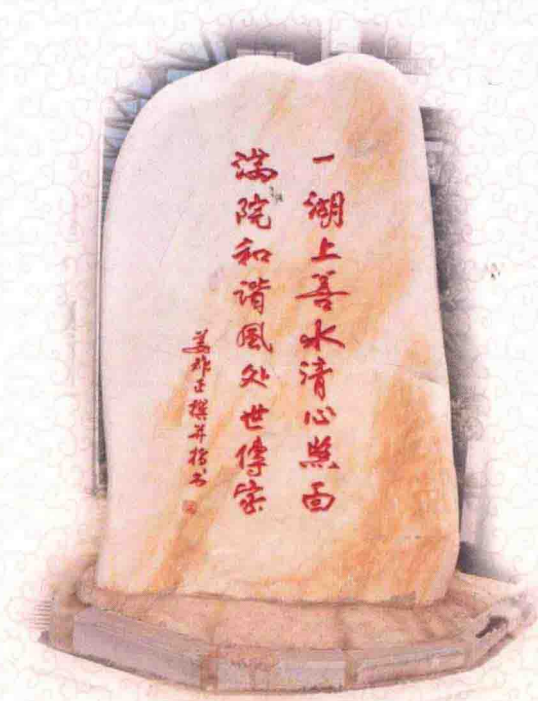 一湖上善水清心照面
满院和谐风处世傳家
姜祚正撰并指书